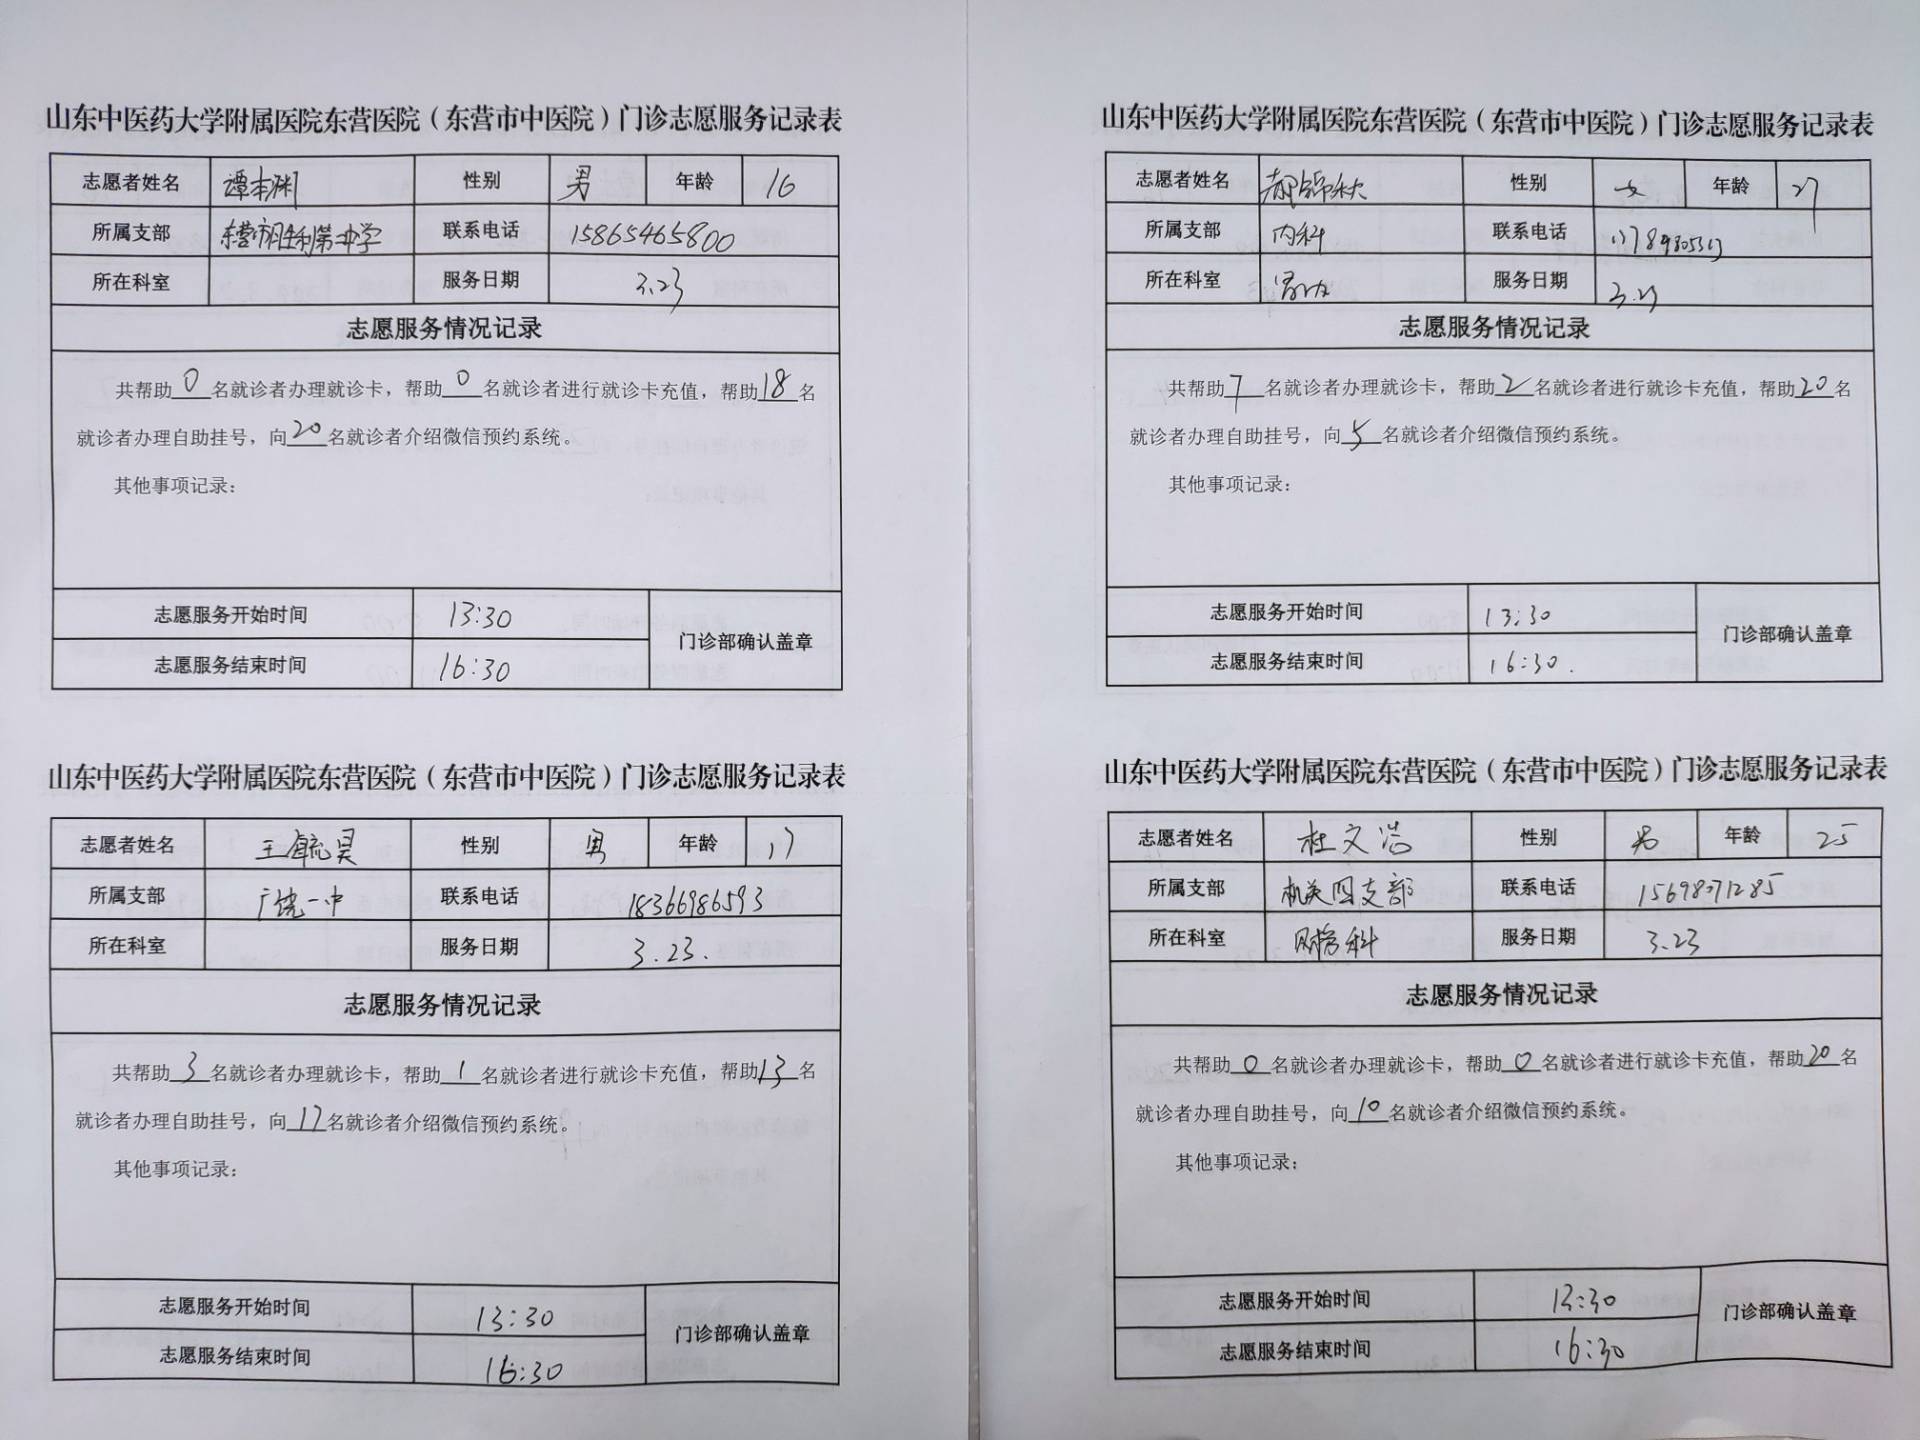 山东中医药大学附属医院东营医院（东营市中医院）门诊志愿服务记录表
志愿者姓名 谭本渊 性别 男 年龄 16
所属支部 东营市胜利第一中学 联系电话 15865465800
所在科室 服务日期 3.23
志愿服务情况记录
共帮助0名就诊者办理就诊卡，帮助0名就诊者进行就诊卡充值，帮助18名
就诊者办理自助挂号，向20名就诊者介绍微信预约系统。
其他事项记录：
志愿服务开始时间 13:30
志愿服务结束时间 16:30
门诊部确认盖章
山东中医药大学附属医院东营医院（东营市中医院）门诊志愿服务记录表
志愿者姓名 锦秋 性别 女 年龄 27
所属支部 内科 联系电话
所在科室 服务日期 3.23
志愿服务情况记录
共帮助7名就诊者办理就诊卡，帮助2名就诊者进行就诊卡充值，帮助20名
就诊者办理自助挂号，向5名就诊者介绍微信预约系统。
其他事项记录：
志愿服务开始时间 13:30
志愿服务结束时间 16:30.
门诊部确认盖章
山东中医药大学附属医院东营医院（东营市中医院）门诊志愿服务记录表
志愿者姓名 王毓昊 性别 男 年龄 17
所属支部 广饶一中 联系电话 18366986593
所在科室 服务日期 3.23.
志愿服务情况记录
共帮助3名就诊者办理就诊卡，帮助1名就诊者进行就诊卡充值，帮助13名
就诊者办理自助挂号，向17名就诊者介绍微信预约系统。
其他事项记录：
志愿服务开始时间 13:30
志愿服务结束时间 16:30
门诊部确认盖章
山东中医药大学附属医院东营医院（东营市中医院）门诊志愿服务记录表
志愿者姓名 杜文浩 性别 男 年龄 25
所属支部 机关四支部 联系电话 15698071285
所在科室 财务科 服务日期 3.23
志愿服务情况记录
共帮助0名就诊者办理就诊卡，帮助0名就诊者进行就诊卡充值，帮助20名
就诊者办理自助挂号，向10名就诊者介绍微信预约系统。
其他事项记录：
志愿服务开始时间 13:30
志愿服务结束时间 16:30
门诊部确认盖章